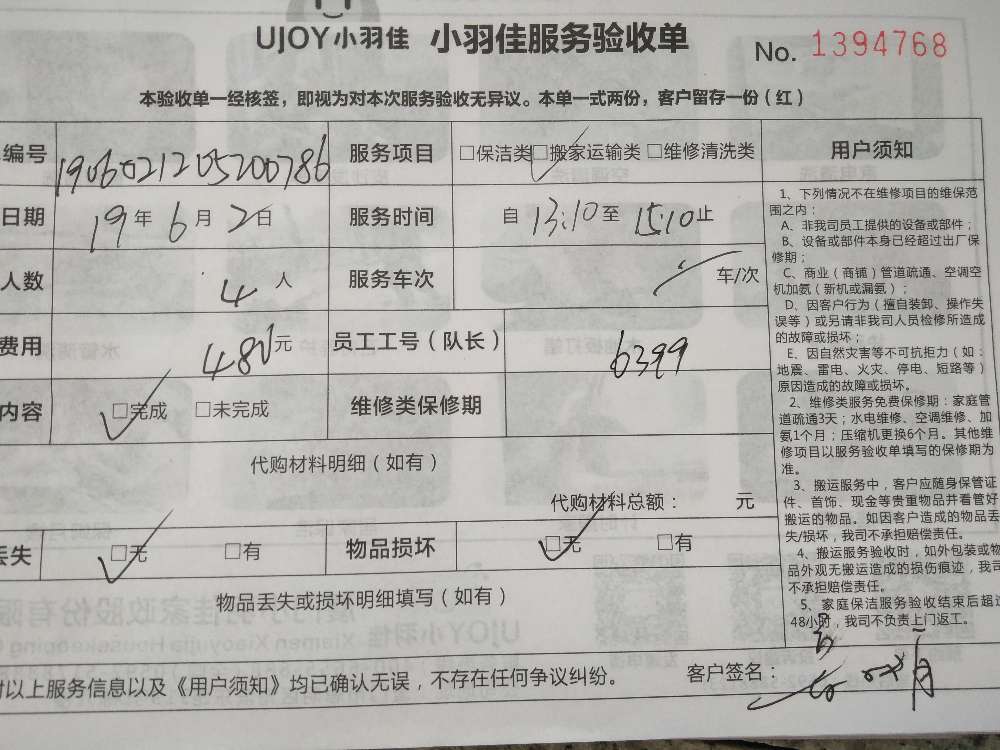 UJOY小羽佳 小羽佳服务验收单 No. 1394768
本验收单一经核签，即视为对本次服务验收无异议。本单一式两份，客户留存一份（红）
编号 1906021205200786 服务项目 □保洁类 □搬家运输类 □维修清洗类 用户须知
日期 19年6月2日 服务时间 自 13:10 至 15:10 止
人数 4 人 服务车次 车/次
费用 480元 员工工号（队长） 6399
内容 □完成 □未完成 维修类保修期
代购材料明细（如有）
代购材料总额： 元
丢失 □无 □有 物品损坏 □无 □有
物品丢失或损坏明细填写（如有）
1、下列情况不在维修项目的维保范
围之内：
A、非我司员工提供的设备或部件；
B、设备或部件本身已经超过出厂保
修期；
C、商业（商铺）管道疏通、空调空
机加氨（新机或漏氨）；
D、因客户行为（擅自装卸、操作失
误等）或另请非我司人员检修所造成
的故障或损坏；
E、因自然灾害等不可抗拒力（如：
地震、雷电、火灾、停电、短路等）
原因造成的故障或损坏。
2、维修类服务免费保修期：家庭管
道疏通3天；水电维修、空调维修、加
氨1个月；压缩机更换6个月。其他维
修项目以服务验收单填写的保修期为
准。
3、搬运服务中，客户应随身保管证
件、首饰、现金等贵重物品并看管好
搬运的物品。如因客户造成的物品丢
失/损坏，我司不承担赔偿责任。
4、搬运服务验收时，如外包装或物
品外观无搬运造成的损伤痕迹，我司
不承担赔偿责任。
5、家庭保洁服务验收结束后超过
48小时，我司不负责上门返工。
以上服务信息以及《用户须知》均已确认无误，不存在任何争议纠纷。 客户签名：